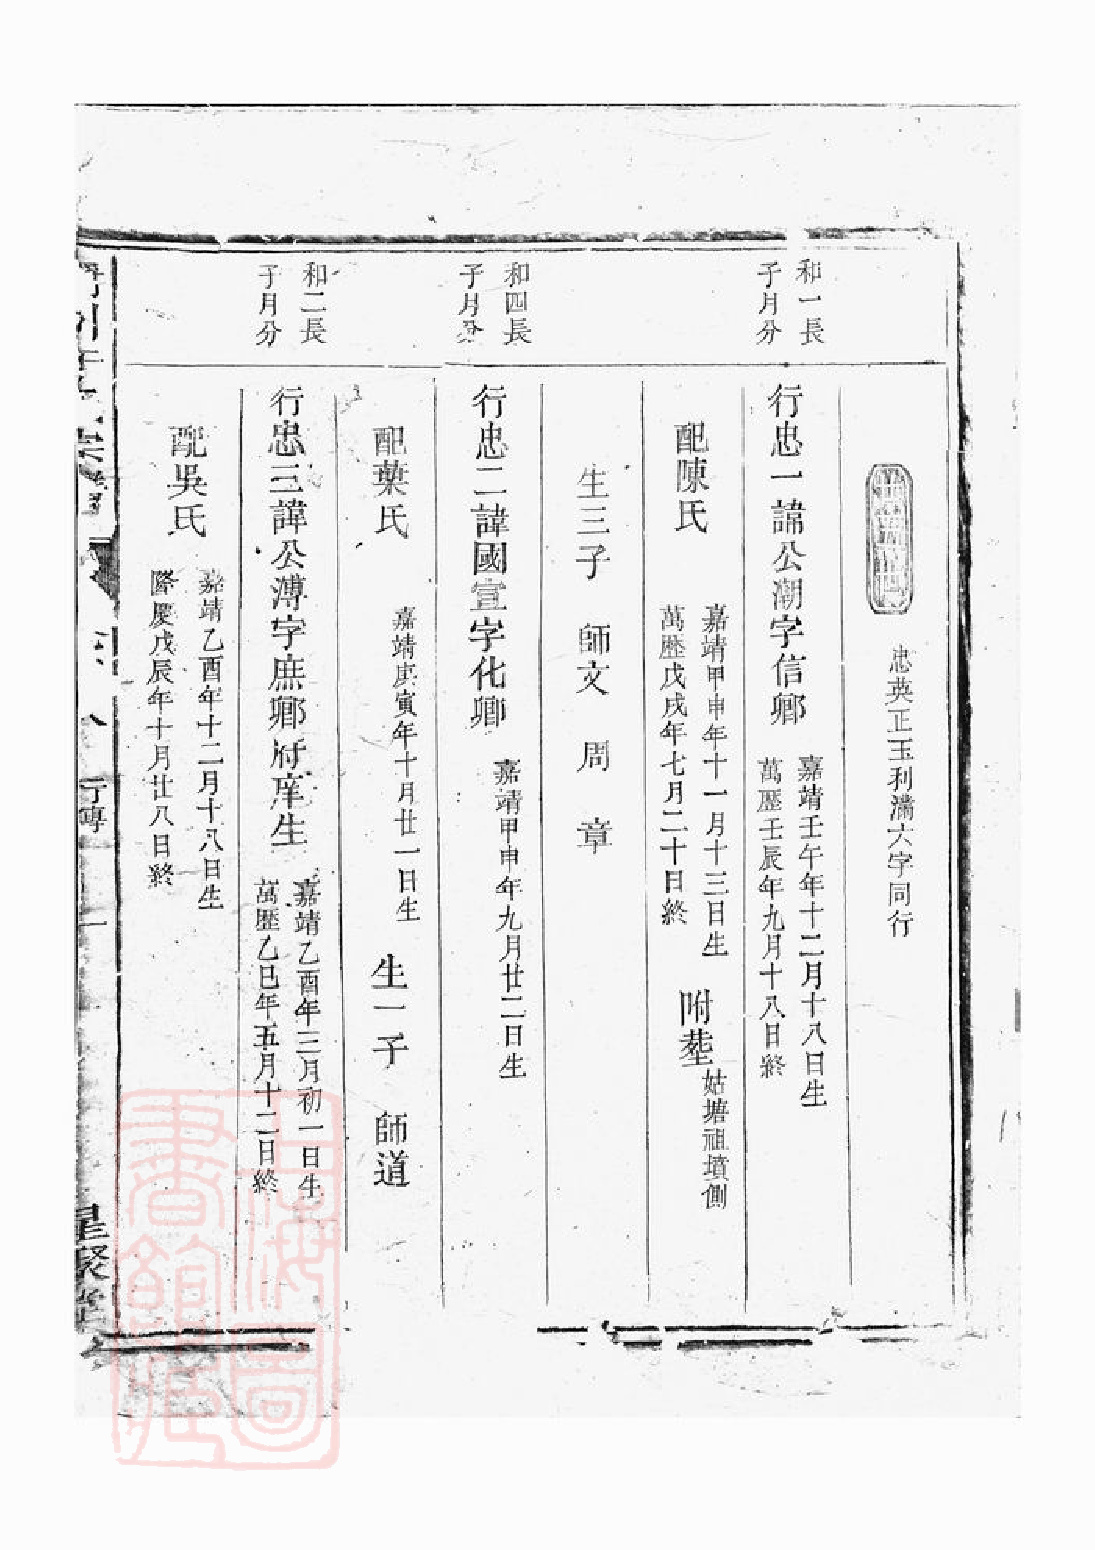 忠英正玉利滿六字同行
和一長
子月分
行忠一諱公潮字信鄉
嘉靖壬午年十二月十八日生
萬歷壬辰年九月十八日終
配陳氏
嘉靖甲申年十一月十三日生
萬歷戊戌年七月二十日終
附塟
姑塘祖墳側
生三子 師文 周 章
和四長
子月分
行忠二諱國宣字化卿
嘉靖甲申年九月廿二日生
配葉氏
嘉靖庚寅年十月廿一日生
生一子 師道
和二長
子月分
行忠三諱公溥字庶鄉府庠生
嘉靖乙酉年三月初一日生
萬歷乙巳年五月十二日終
配吳氏
嘉靖乙酉年十二月十八日生
隆慶戊辰年十月廿八日終
行傳
星聚堂
上海圖書館藏